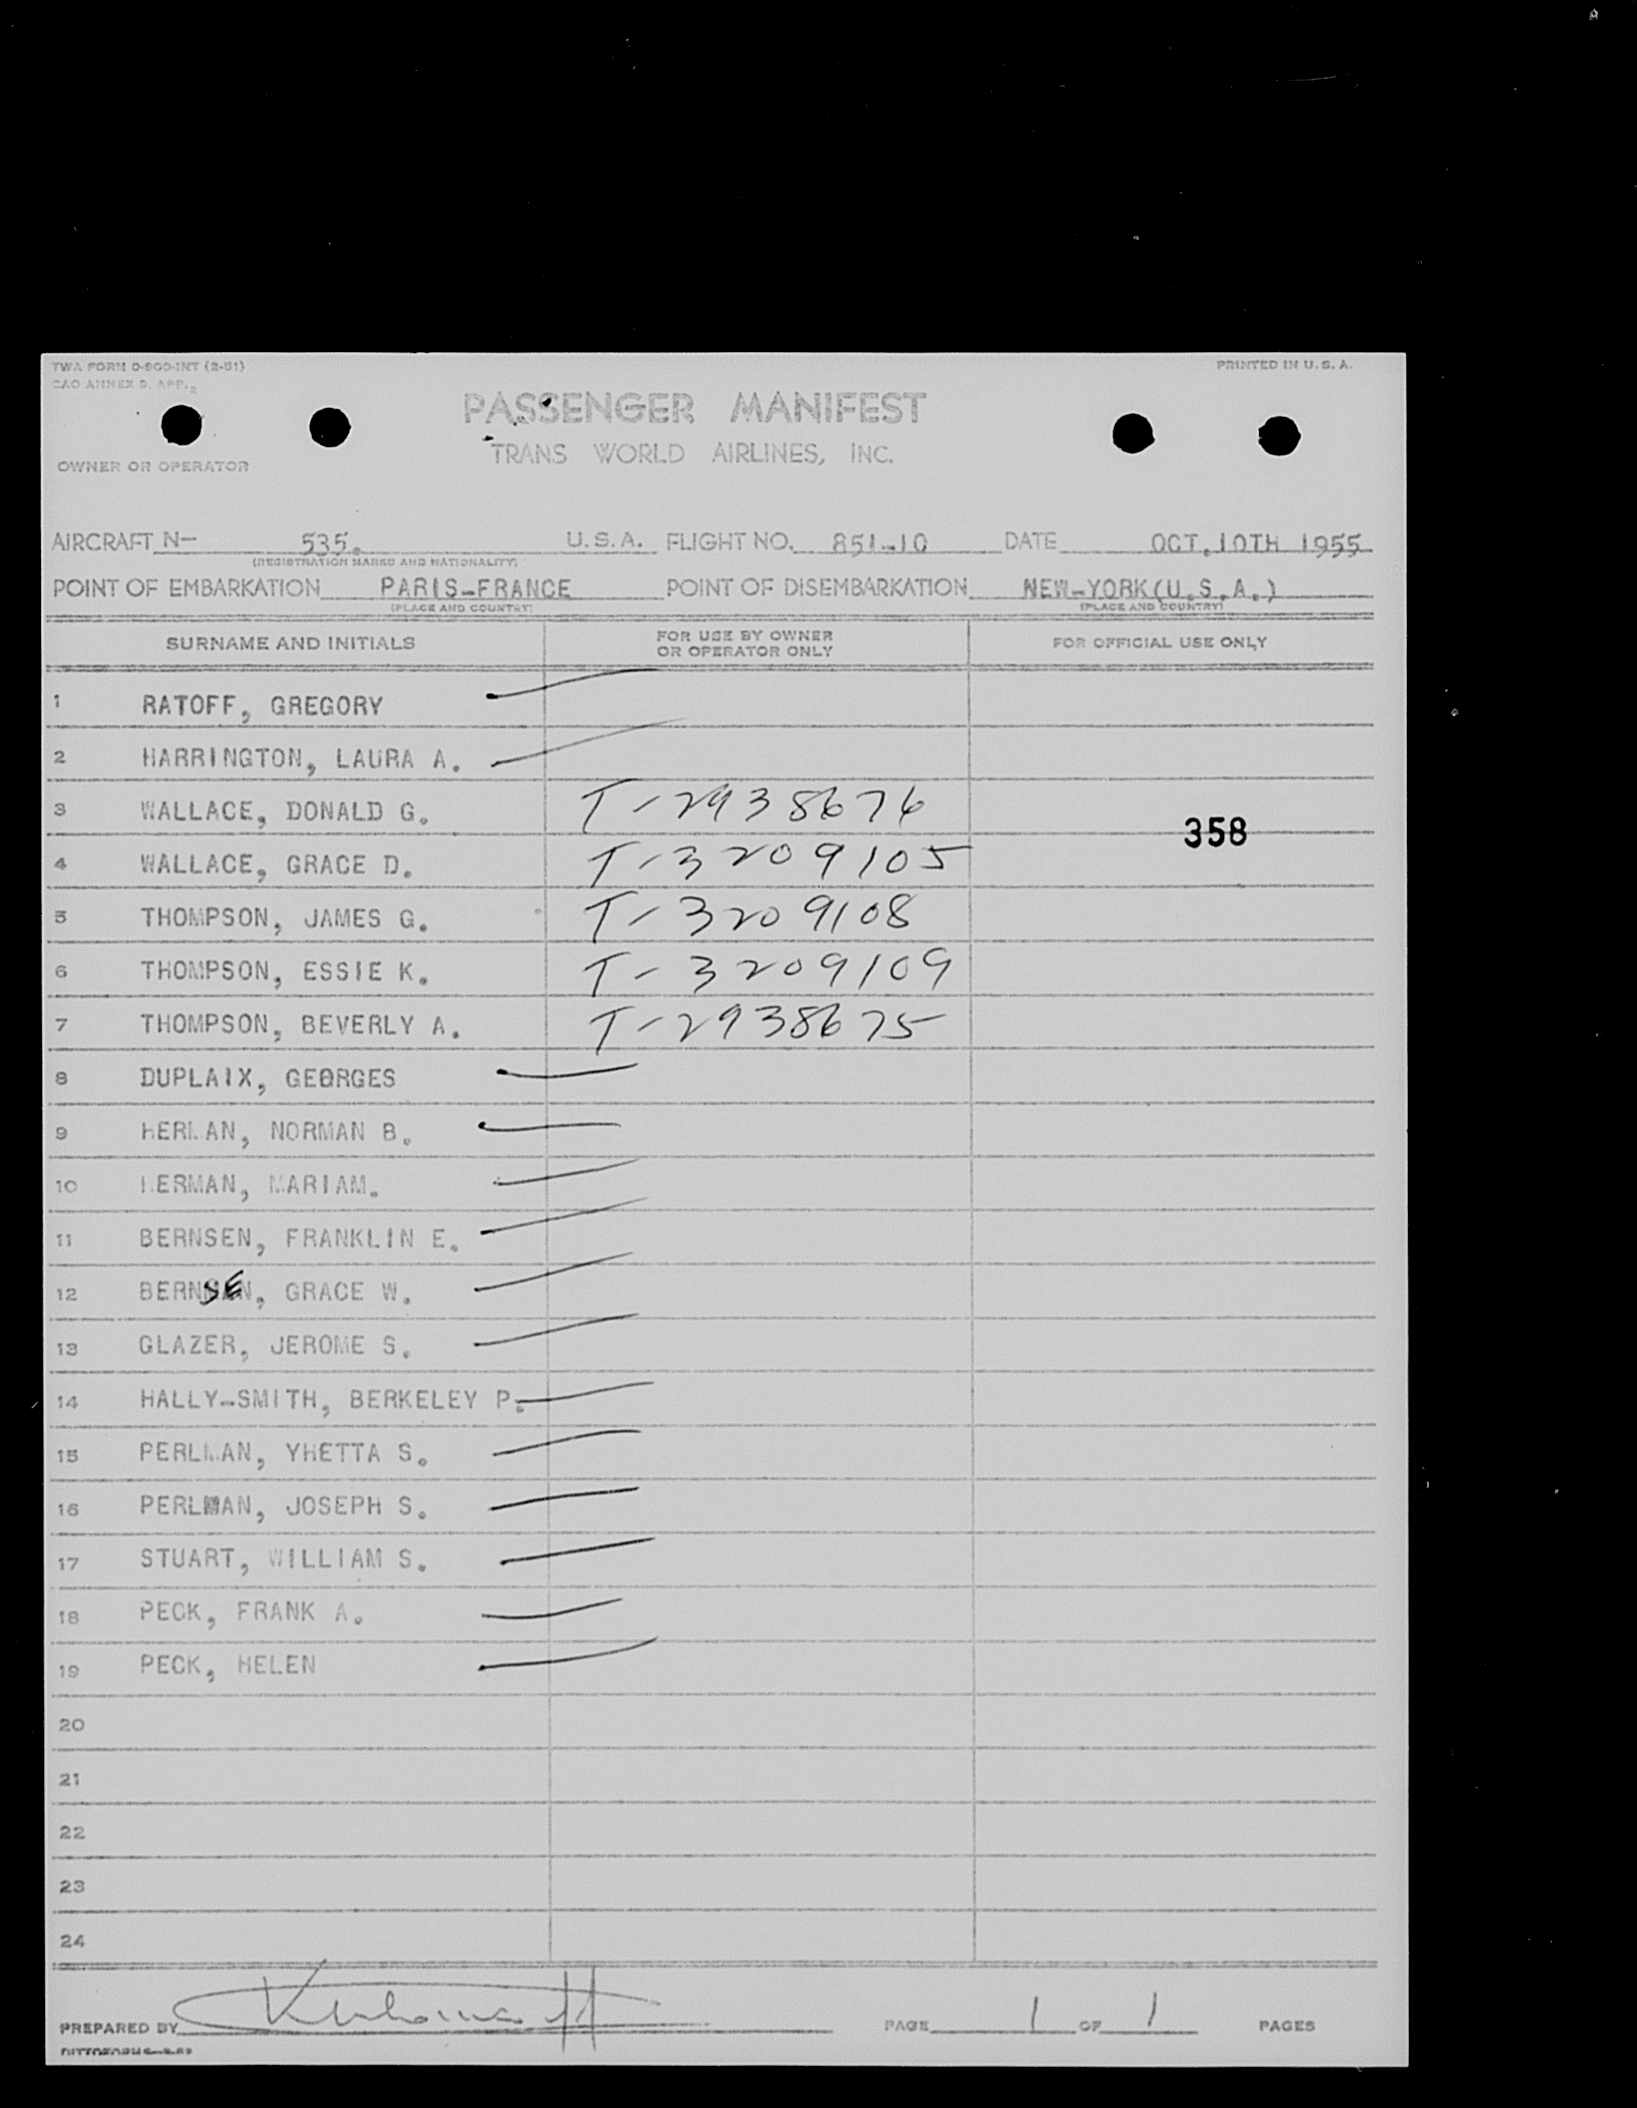 TWA FORM O-900-INT (2-51)
PRINTED IN U.S.A.
CAO ANNEX 9, APP. 2
PASSENGER MANIFEST
TRANS WORLD AIRLINES, INC.
OWNER OR OPERATOR
AIRCRAFT N- 535. U.S.A. FLIGHT NO. 851-10 DATE OCT.10TH 1955
(REGISTRATION MARKS AND NATIONALITY)
POINT OF EMBARKATION PARIS-FRANCE POINT OF DISEMBARKATION NEW-YORK(U.S.A.)
(PLACE AND COUNTRY) (PLACE AND COUNTRY)
SURNAME AND INITIALS FOR USE BY OWNER OR OPERATOR ONLY FOR OFFICIAL USE ONLY
1 RATOFF, GREGORY
2 HARRINGTON, LAURA A.
3 WALLACE, DONALD G. T-2938676
358
4 WALLACE, GRACE D. T-3209105
5 THOMPSON, JAMES G. T-3209108
6 THOMPSON, ESSIE K. T-3209109
7 THOMPSON, BEVERLY A. T-2938675
8 DUPLAIX, GEORGES
9 HERMAN, NORMAN B.
10 HERMAN, MARIAM.
11 BERNSEN, FRANKLIN E.
12 BERNSEN, GRACE W.
13 GLAZER, JEROME S.
14 HALLY-SMITH, BERKELEY P.
15 PERLMAN, YHETTA S.
16 PERLMAN, JOSEPH S.
17 STUART, WILLIAM S.
18 PECK, FRANK A.
19 PECK, HELEN
20
21
22
23
24
PREPARED BY PAGE 1 OF 1 PAGES